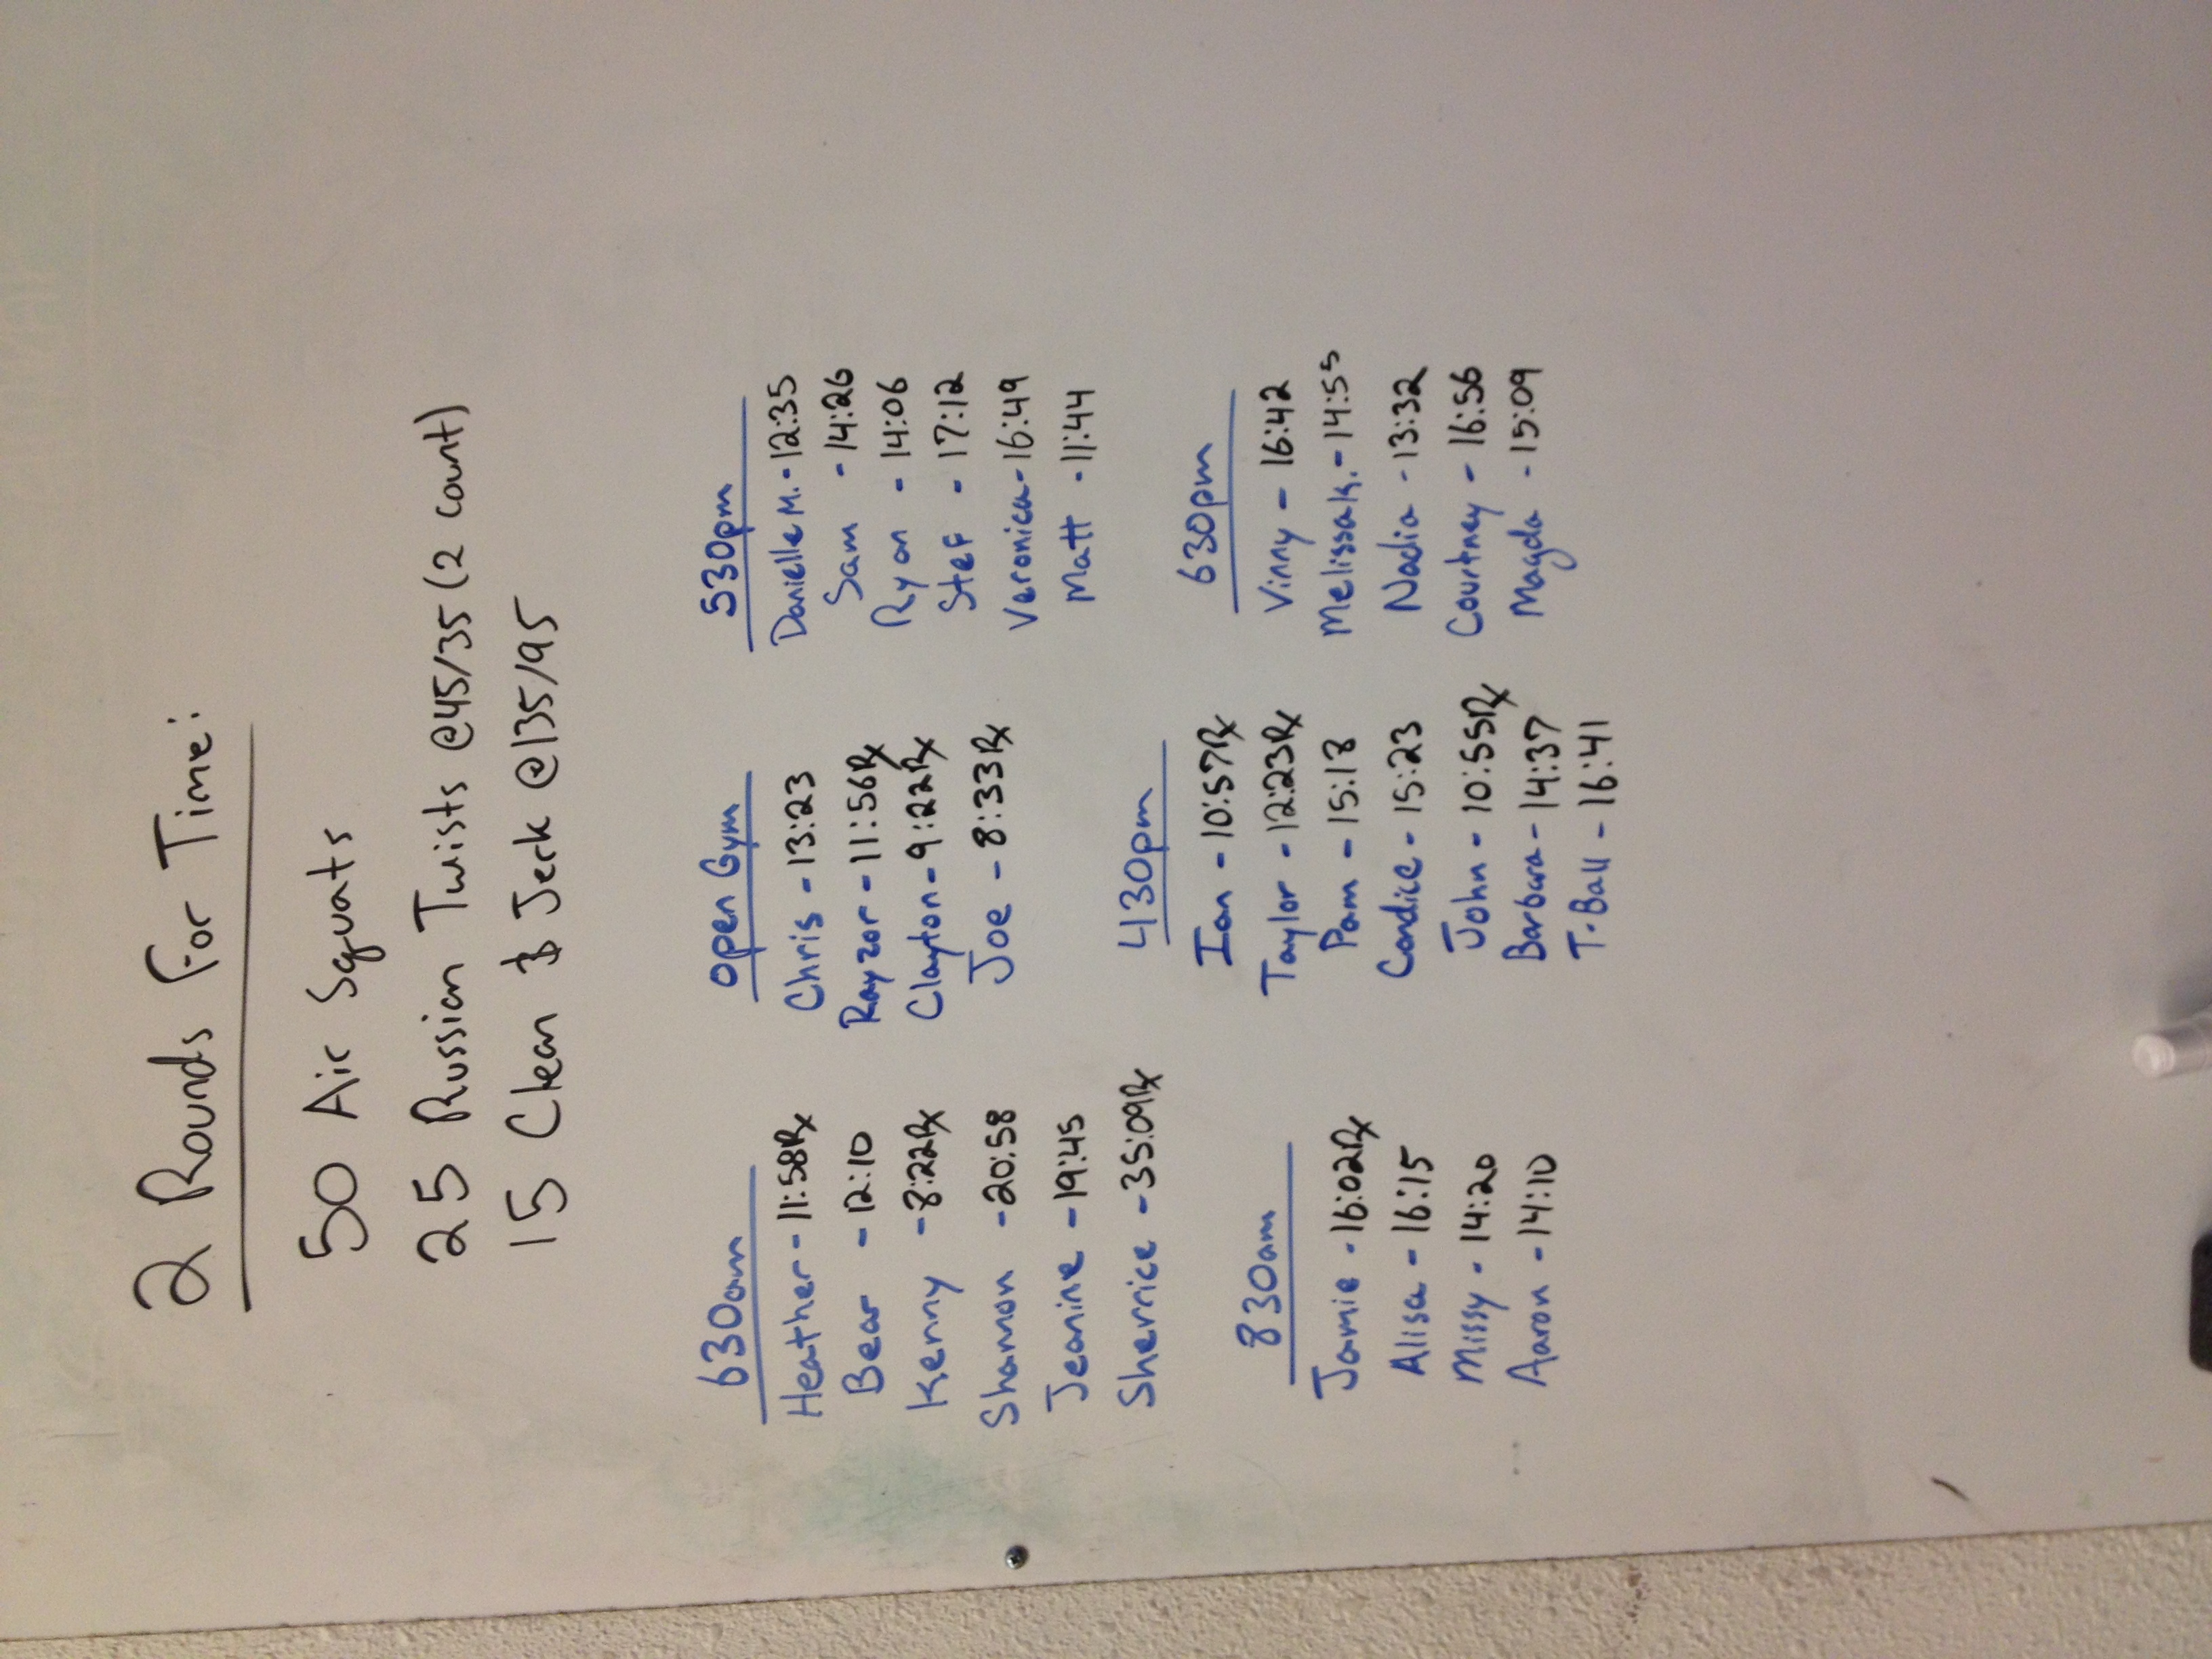 2 Rounds For Time:
50 Air Squats
25 Russian Twists @45/35 (2 count)
15 Clean & Jerk @135/95
630am
Heather - 11:58Rx
Bear - 12:10
Kenny - 8:22Rx
Shannon - 20:58
Jeanine - 19:45
Sherrice - 35:09Rx
830am
Jamie - 16:02Rx
Alisa - 16:15
Missy - 14:20
Aaron - 14:10
open Gym
Chris - 13:23
Rayzor - 11:56Rx
Clayton - 9:22Rx
Joe - 8:33Rx
430pm
Ian - 10:57Rx
Taylor - 12:23Rx
Pam - 15:18
Candice - 15:23
John - 10:55Rx
Barbara - 14:37
T-Ball - 16:41
530pm
Danielle M. - 12:35
Sam - 14:26
Ryan - 14:06
Stef - 17:12
Veronica - 16:49
Matt - 11:44
630pm
Vinny - 16:42
Melissa K. - 14:55
Nadia - 13:32
Courtney - 16:56
Magda - 15:09